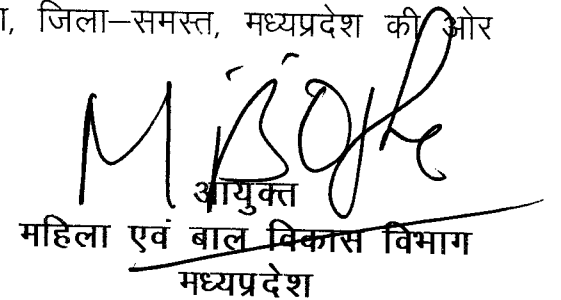 जिला–समस्त, मध्यप्रदेश की ओर
आयुक्त
महिला एवं बाल विकास विभाग
मध्यप्रदेश